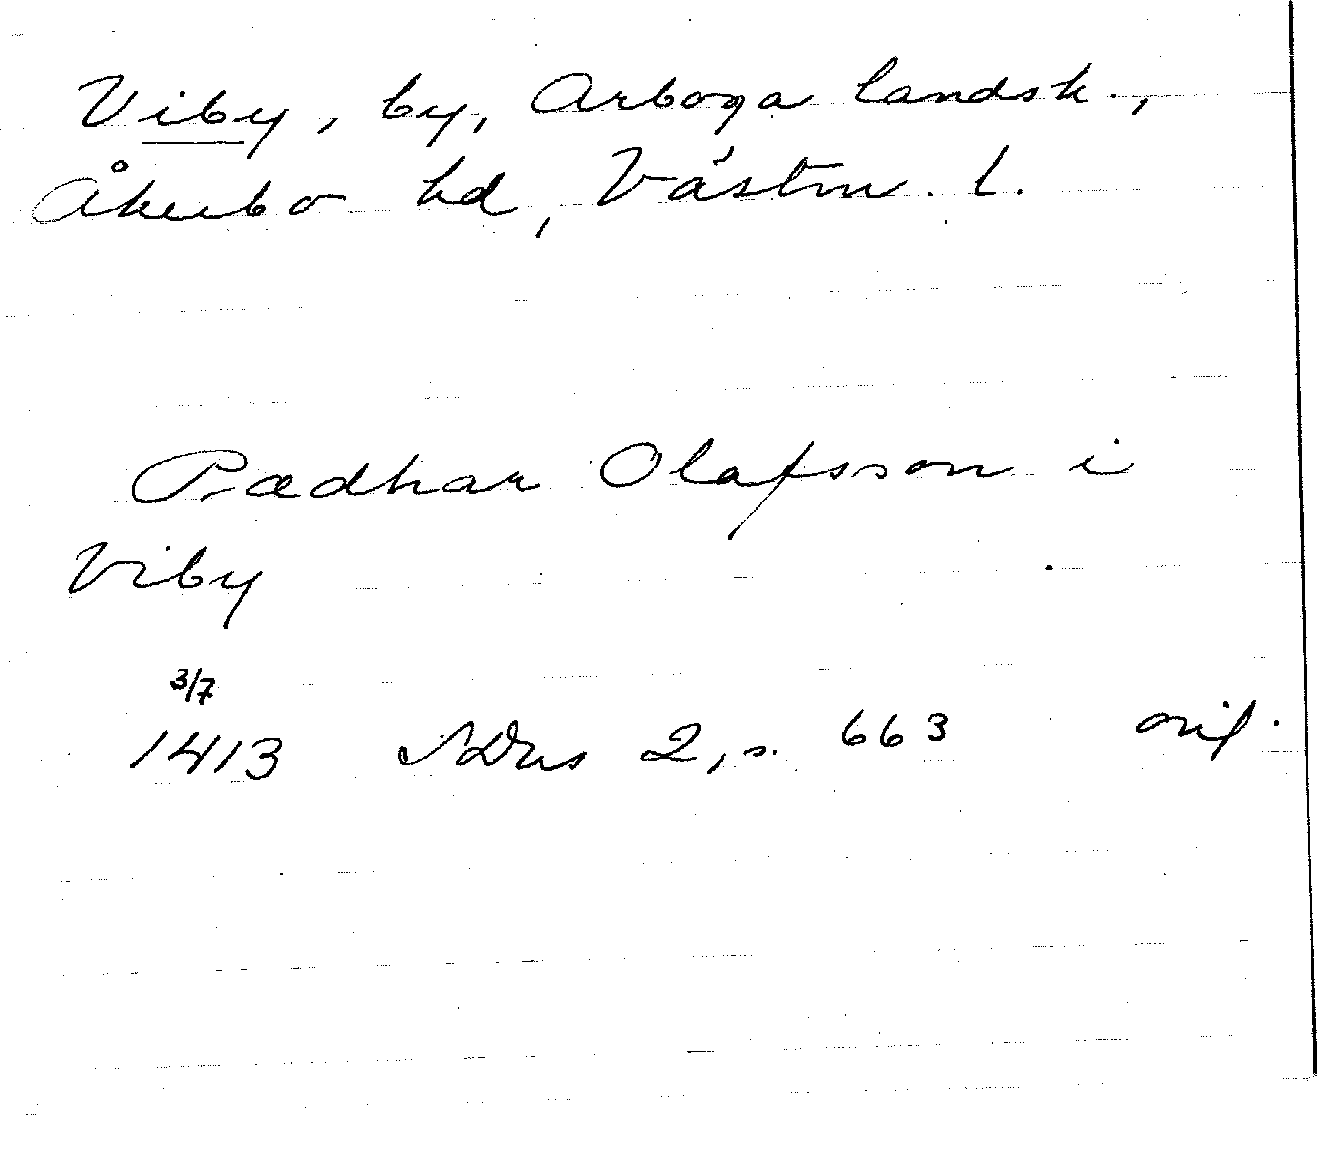 Viby, by, Arboga landsk.,
Åkerbo hd, Västm. l.
Pædhar Olafsson i
Viby
3/7
1413 SDns 2, s. 663 orig.